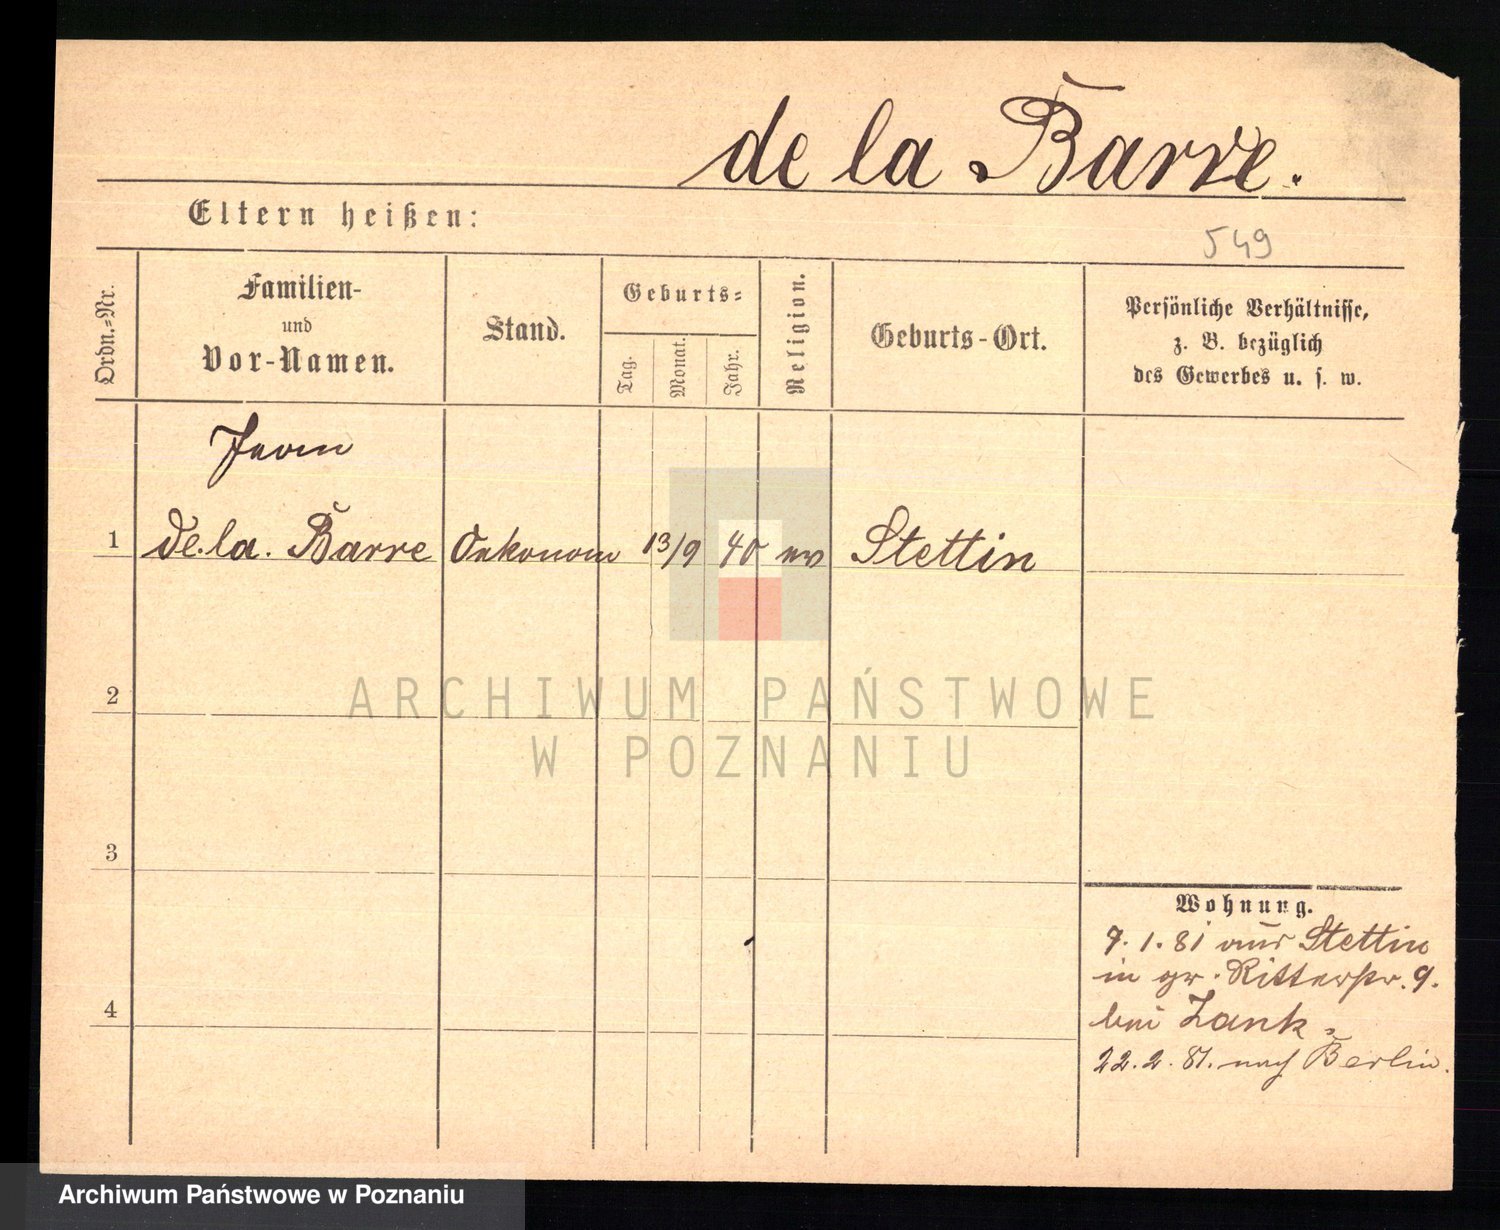 de la Barre.
Eltern heißen:
549
Ordn.=Nr.
Familien-
und
Vor-Namen.
Stand.
Geburts=
Tag.
Monat.
Jahr.
Religion.
Geburts-Ort.
Persönliche Verhältnisse,
z. B. bezüglich
des Gewerbes u. s. w.
1
de. la. Barre Oekonom 13/9 40 ev Stettin
2
ARCHIWUM PAŃSTWOWE
W POZNANIU
3
4
Wohnung.
7. 1. 81 aus Stettin
in gr. Ritterstr. 9.
bei Zank.
22. 2. 81. nach Berlin.
Archiwum Państwowe w Poznaniu